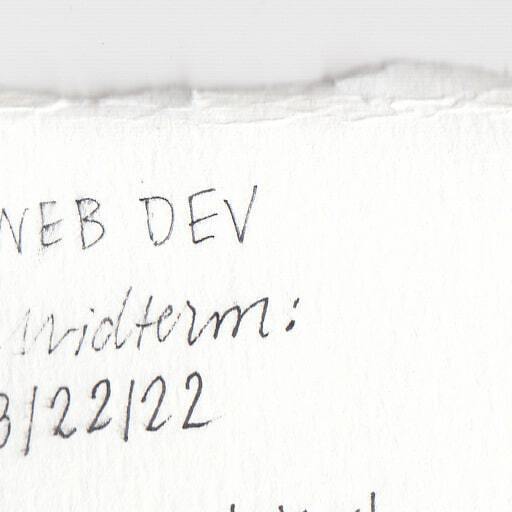 WEB DEV
Midterm:
3/22/22